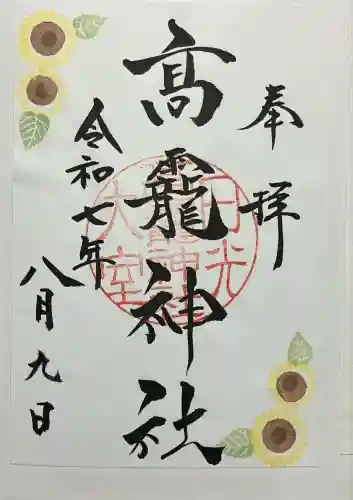 奉拝
高龗神社
令和七年
八月九日
日光
大室